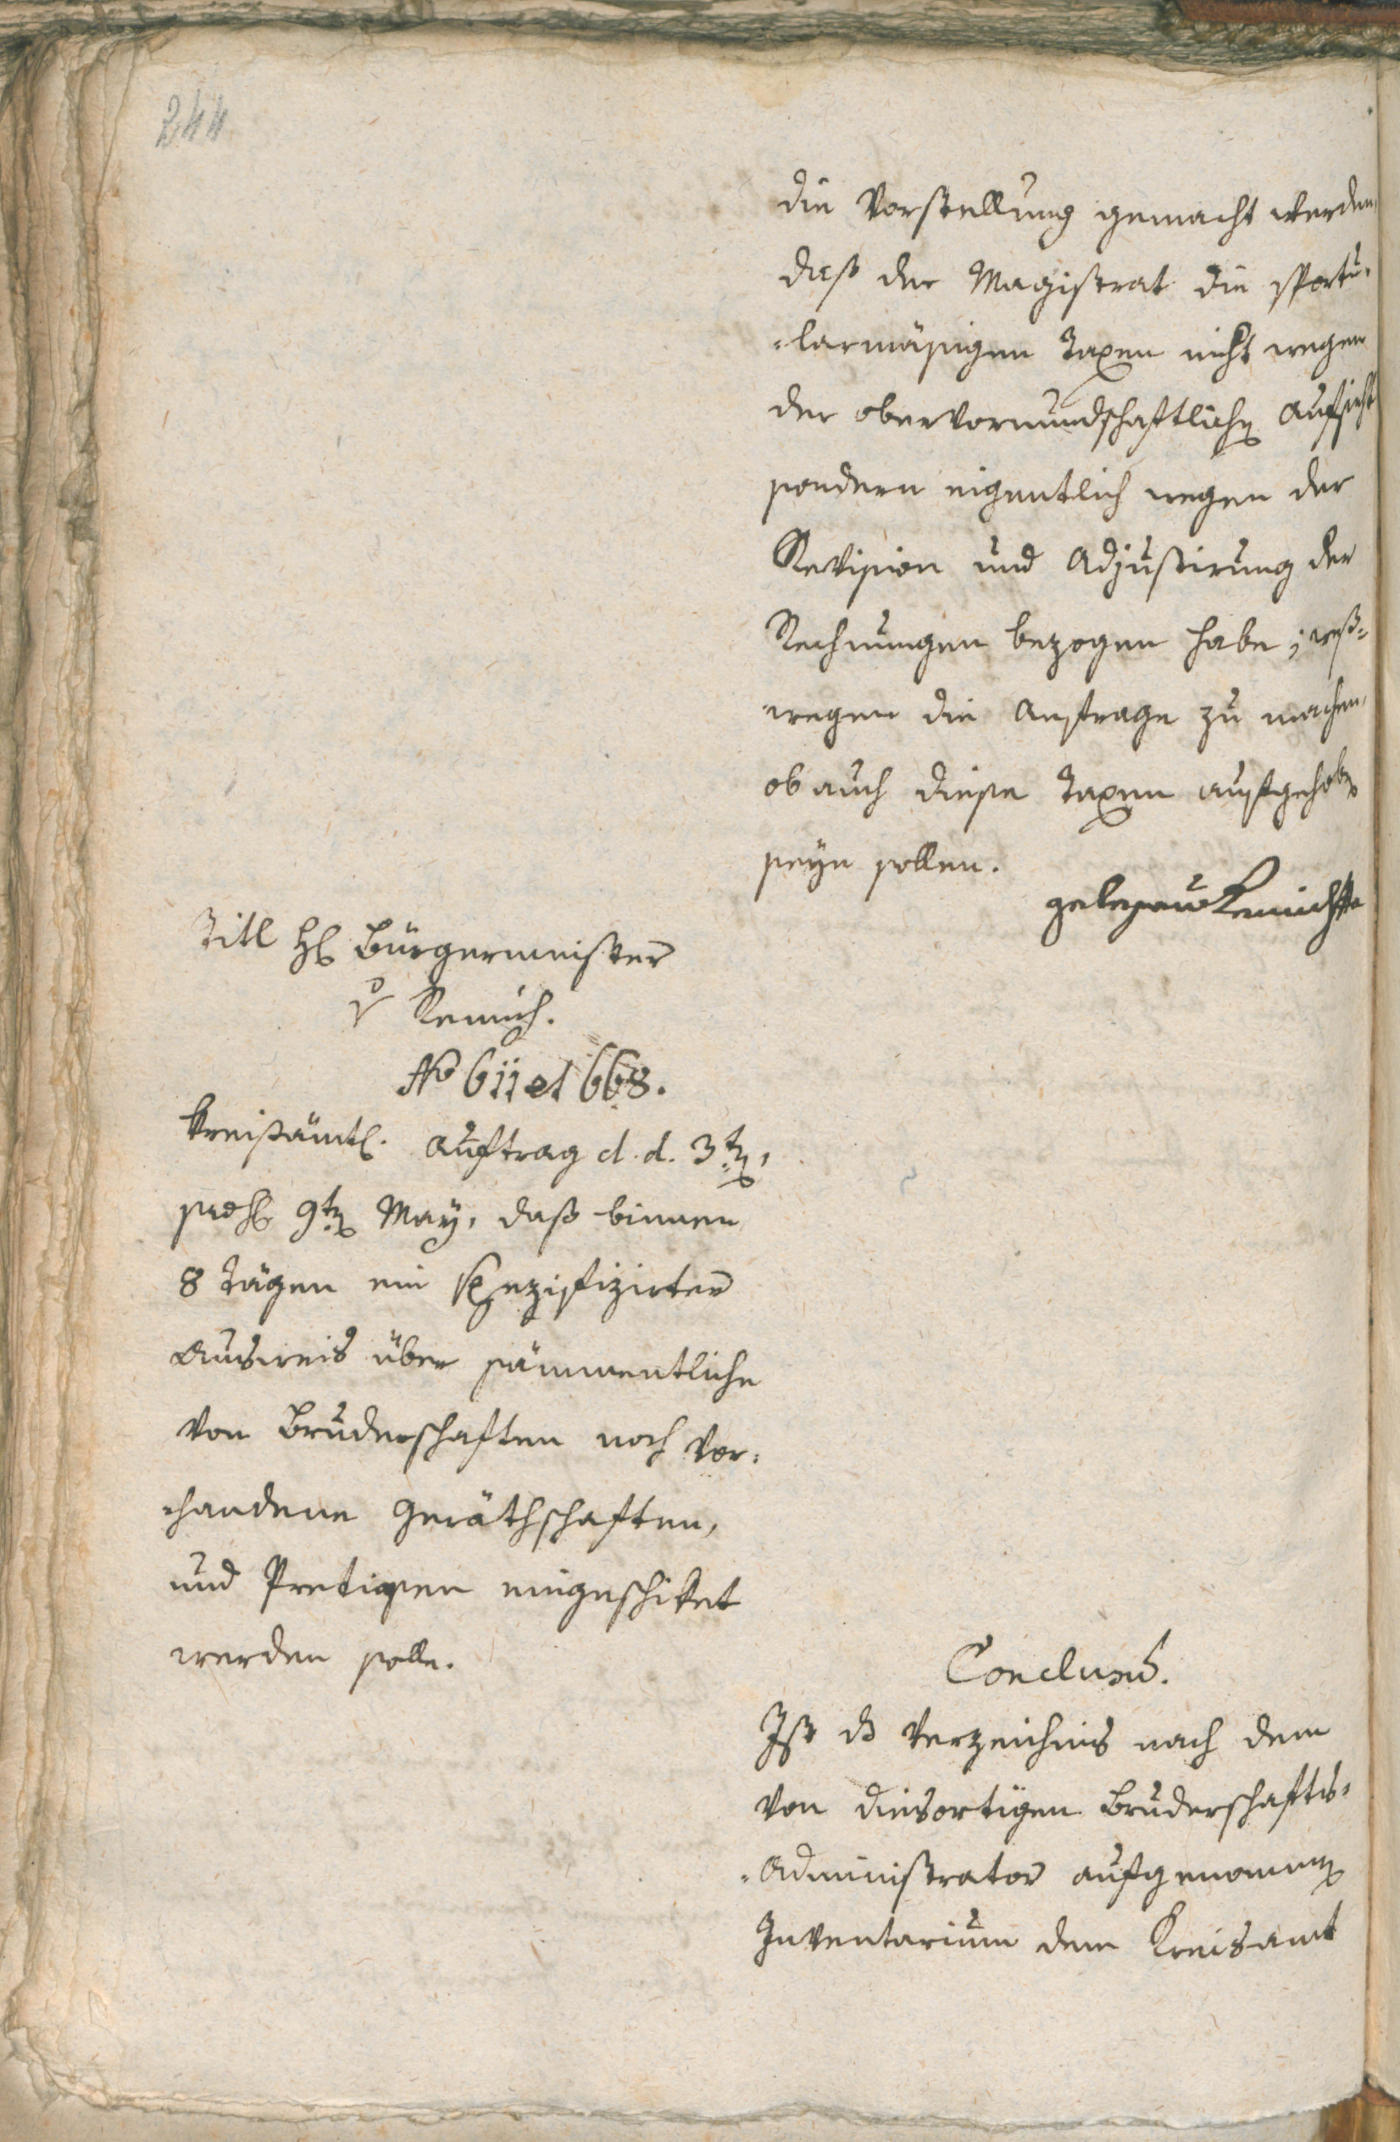 244
die Vorstellung gemacht werden,
daß der Magistrat die sportu-
-larmäsigen Taxen nicht wegen
der obervormundschaftlichen Aufsicht
sondern eigentlich wegen der
Revision und Adjustirung der
Rechnungen bezogen habe; weß-
wegen die Anfrage zu machen,
ob auch diese Taxen aufgehoben
seyn sollen.
gelesen
Titl H Bürgermeister
v Remich.
No 611 et 668.
Kreisämtl. Auftrag d. d. 3ten,
9ten May, daß binnen
8 Tägen ein spezifizirter
Ausweis über sämmentliche
von Bruderschaften noch vor-
-handene Geräthschaften,
und Pretiosen eingeschiket
werden solle.
Conclusum.
Ist das Verzeichnis nach dem
von diesortigen Bruderschafts-
-Administrator aufgenommen
Inventarium dem Kreisamt